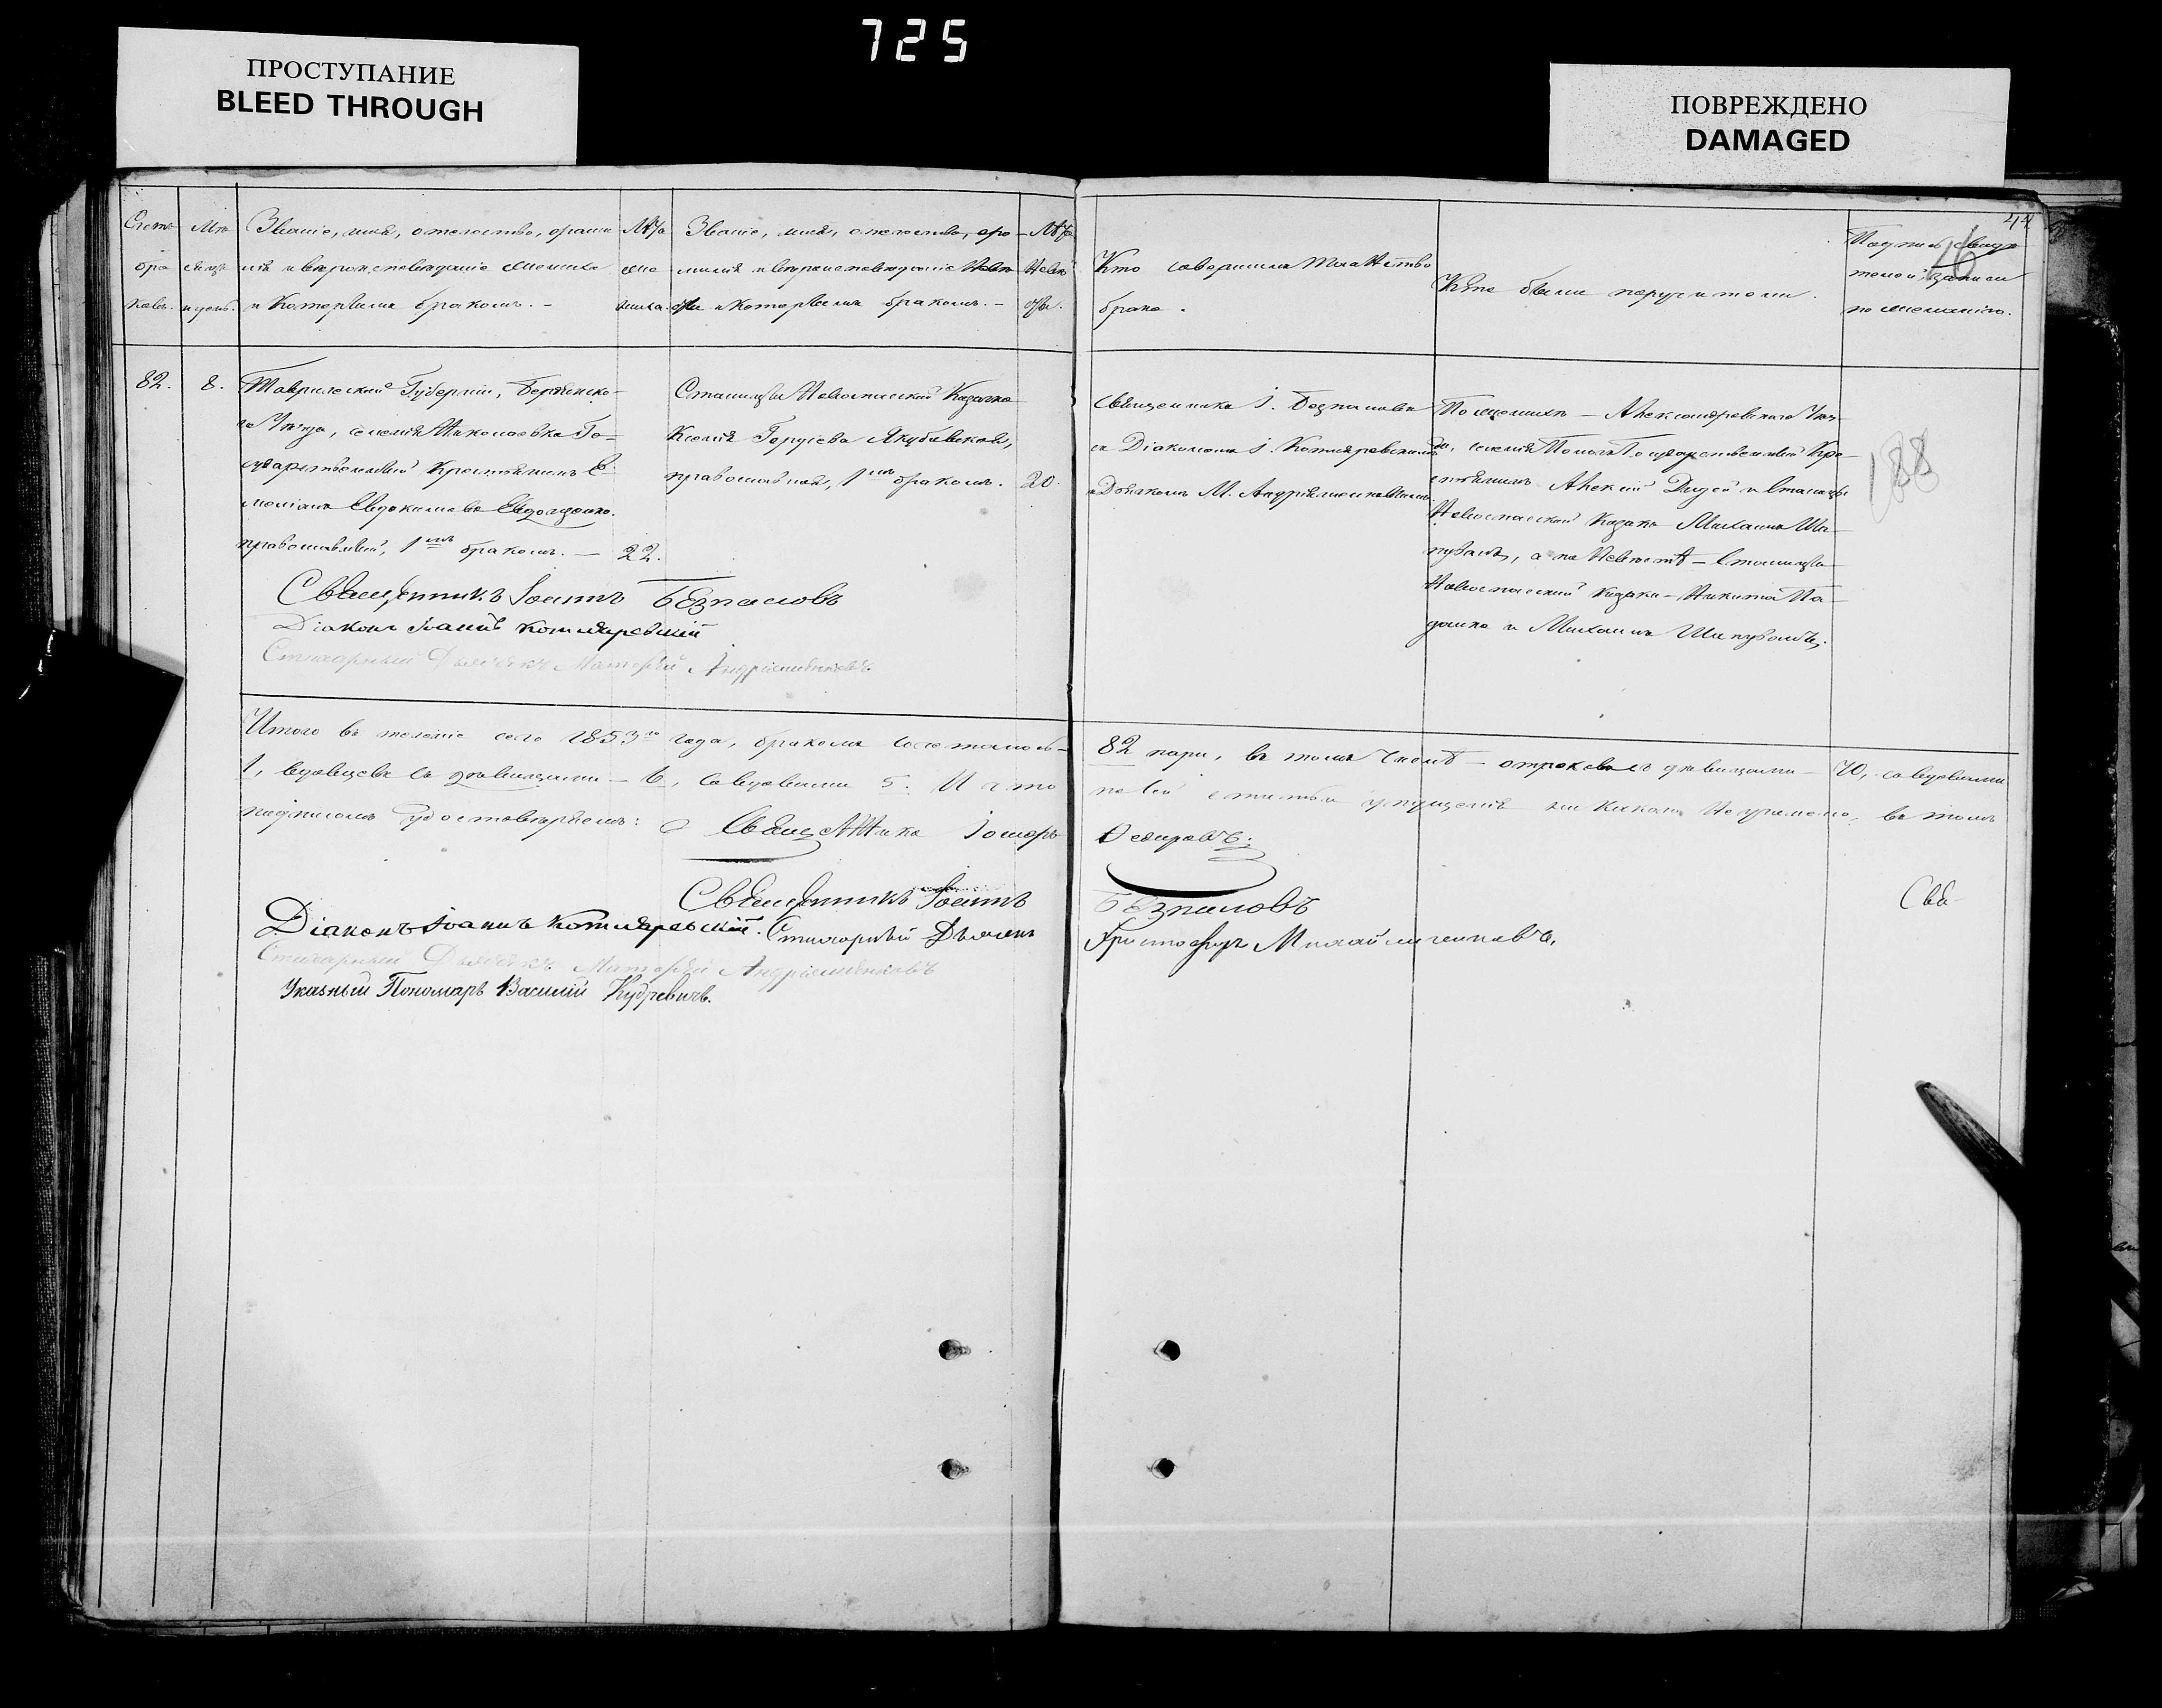 725
ПРОСТУПАНИЕ
BLEED THROUGH
ПОВРЕЖДЕНО
DAMAGED
44
16
Счетъ бра ковъ.
Мѣ сяцъ и день.
Званіе, имя, отечество, фами
лія и вѣроисповѣданіе жениха
и которымъ бракомъ. -
Лѣта же ниха.
Званіе, имя, отечество, фа-
милія и вѣроисповѣданіе невѣ
сты и которымъ бракомъ. -
Лѣта невѣ сты.
Кто совершилъ таинство
брака.
Кто были поручители.
Подпись свидѣ
телей записи
по желанію.
82.
8.
Таврической Губерніи, Бердянска-
го Уѣзда, селенія Николаевка Го-
сударственный Крестьянинъ Е-
меліанъ Евдокимовъ Евдощенко.
православный, 1мъ бракомъ. — 22.
Станицы Новоспаской Казачка
Ксенія Гордіева Якубовскова,
православная, 1мъ бракомъ. 20.
Священникъ І. Безпаловъ
съ Діакономъ І. Котляревскимъ
и Дьячкомъ М. Андріяшенковымъ.
По женихѣ — Александровскаго Уѣз-
да, селенія Пологъ Государственный Кре-
стьянинъ Алексій Дидей и Станицы
Новоспаской Казакъ Михаилъ Ша-
пувалъ, а по невѣстѣ — Станицы
Новоспаской Казаки — Никита По-
и Михаилъ Шапувалъ.
188
Священникъ Іоаннъ Безпаловъ
Діаконъ Іоаннъ Котляревскій
Стихарный Дьячекъ Матфей Андріяшенковъ
Итого въ теченіе сего 1853го года, бракомъ сочеталось — 82 пари, въ томъ числѣ — отроковъ съ дѣвицами — 70, со вдовами
1, вдовцевъ съ дѣвицами — 6, со вдовами 5. И что по сей статьѣ упущенія ни какого не учинено, въ томъ
подписомъ удостовѣряемъ: Священникъ Ѳедоровъ.
Священникъ Іоаннъ Безпаловъ
Свя-
Діаконъ Іоаннъ Котляревскій. Стихарный Дьячекъ Христофоръ Михайличенковъ.
Стихарный Дьячекъ Матфей Андріяшенковъ
Указный Пономарь Василій Кудревичъ.